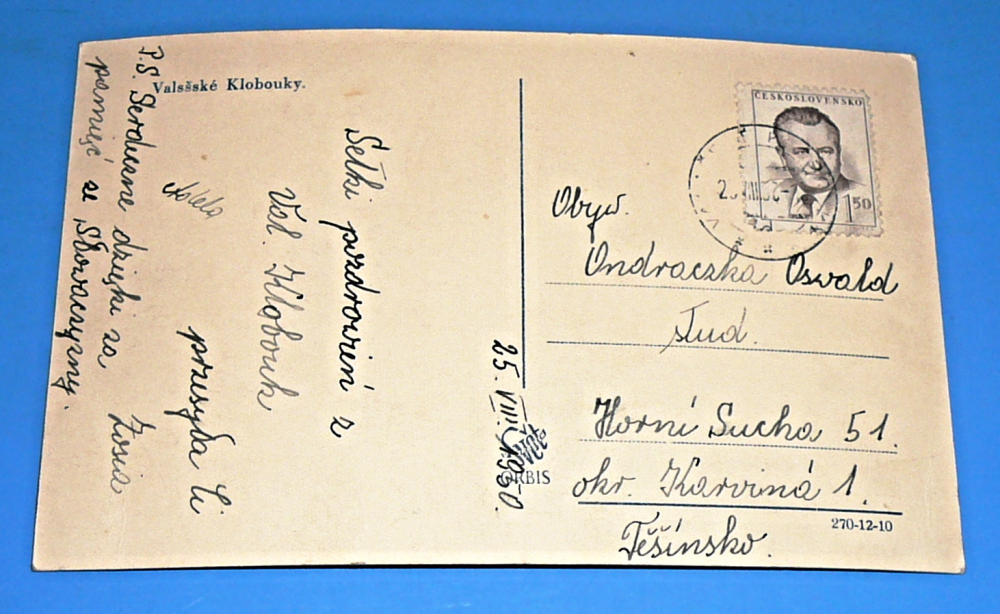 Valsšské Klobouky.
Setki pozdrowień z
Val. Klobouk
przesyła Ci
Zosia
P.S. Serdeczne dzięki za
pamięć ze Słowaczyzny.
25. VIII. 1950.
ORBIS
ČESKOSLOVENSKO
1 50
Obyw.
Ondraczka Oswald
stud.
Horní Sucha 51.
okr. Karviná 1.
Těšínsko.
270-12-10